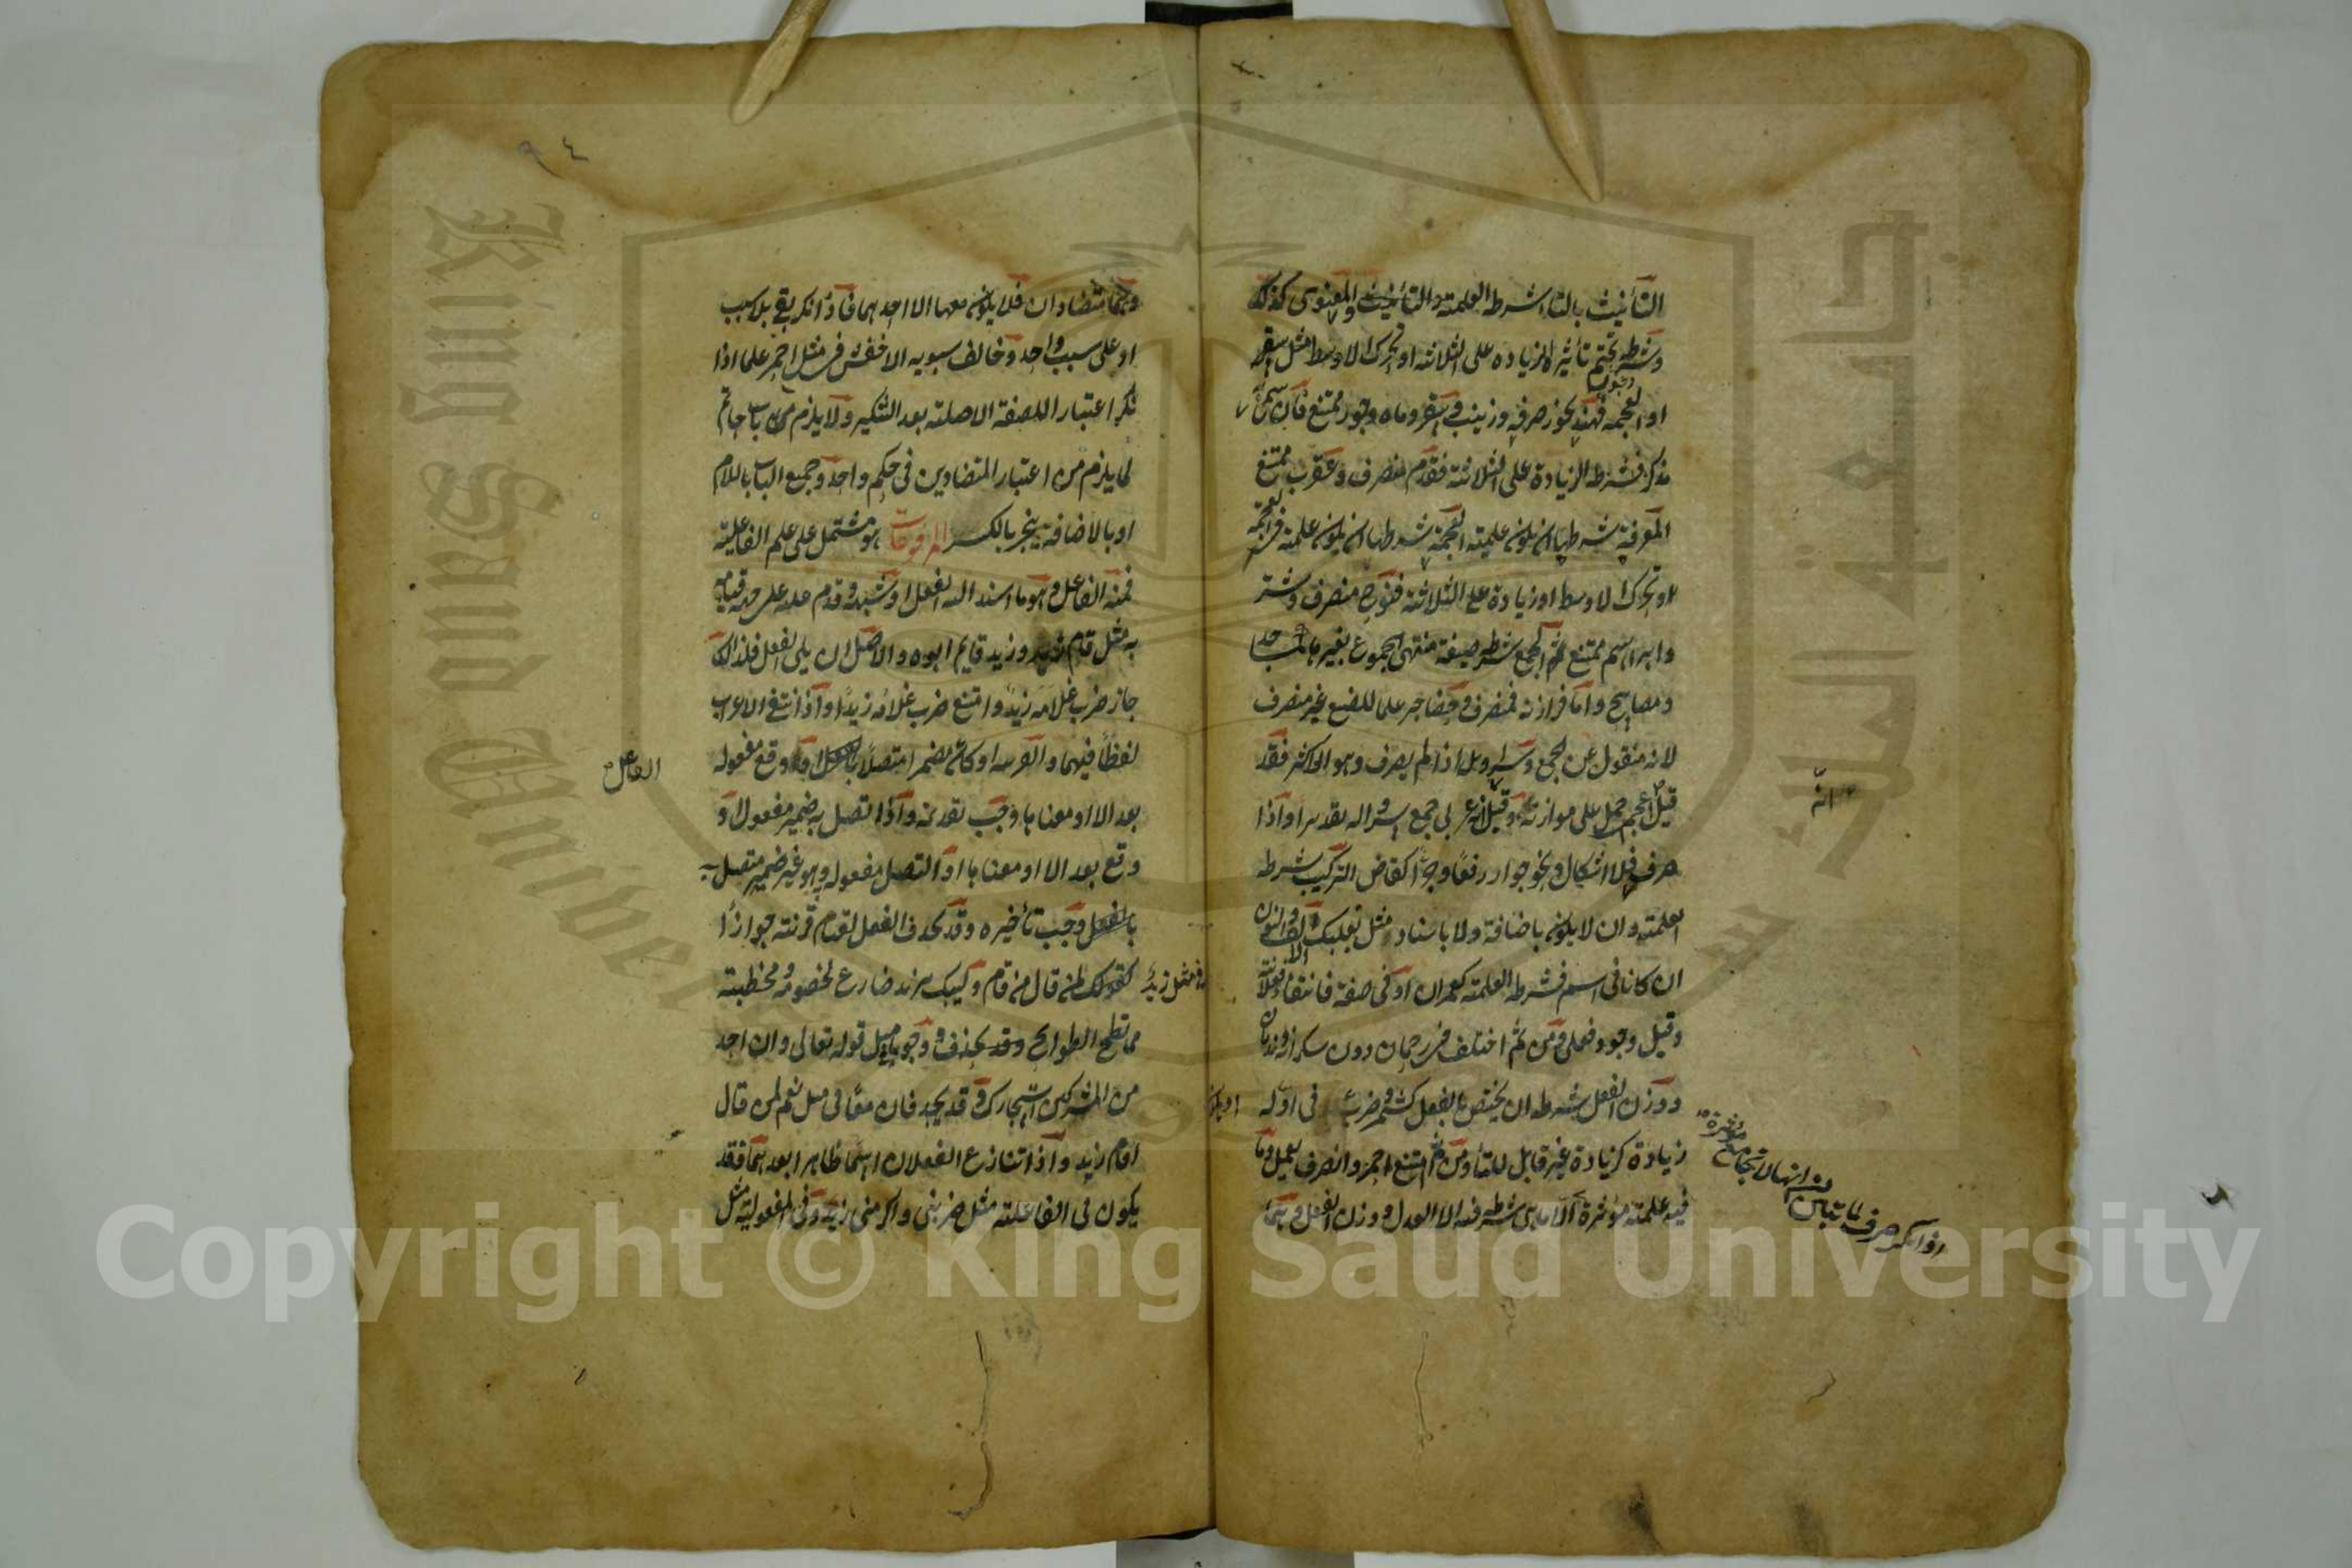 التأنيث بالتاء شرطه العلمية والتأنيث والمعنوي كذلك
وشرط تحتم تأثيره الزيادة على الثلاثة او تحرك الاوسط مثل سقر
او العجمة فهند يجوز صرفه وزينب وسقر وماه وجور ممتنع فان سمي
مذكر فشرطه الزيادة على الثلاثة فقدم منصرف وعقرب ممتنع
المعرفة شرطها ان يكون علمية العجمة شرطها ان يكون علمية في العجمة
او تحرك الاوسط او زيادة على الثلاثة فنوح منصرف وشتر
وابراهيم ممتنع الجمع شرطه صيغة منتهى الجموع بغير هاء كمساجد
ومصابيح واما فرازنة فمنصرف وحضاجر علما للضبع غير منصرف
لانه منقول عن الجمع وسراويل اذا لم يصرف وهو الاكثر فقد
قيل اعجمي حمل على موازنه وقيل عربي جمع سروالة تقديرا واذا
صرف فلا اشكال ونحو جوار رفعا وجرا كقاض التركيب شرطه
العلمية وان لا يكون باضافة ولا باسناد مثل بعلبك الالف والنون
ان كانا في اسم فشرطه العلمية كعمران او في صفة فانتفاء فعلانة
وقيل وجود فعلى ومن ثم اختلف في رحمان دون سكران وندمان
ووزن الفعل شرطه ان يختص بالفعل كشمر وضرب في اوله
او يكون
زيادة كزيادته غير قابل للتاء ومن ثم امتنع احمر وانصرف يعمل وما
فيه علمية مؤثرة الا ما هي شرط فيه الا العدل ووزن الفعل وهما
انه
اذا نكر صرف لما تبين من انها لا تجامع مؤثرة
٩٤
وهما متضادان فلا يكون معها الا احدهما فاذا نكر بقي بلا سبب
او على سبب واحد وخالف سيبويه الاخفش في مثل احمر علما اذا
نكر اعتبارا للصفة الاصلية بعد التنكير ولا يلزم باب حاتم
لما يلزم من اعتبار المتضادين في حكم واحد وجميع الباب باللام
او بالاضافة ينجر بالكسر المرفوعات هو مشتمل على علم الفاعلية
فمنه الفاعل وهو ما اسند اليه الفعل او شبهه وقدم عليه على جهة قيامه
به مثل قام زيد وزيد قايم ابوه والاصل ان يلي الفعل فلذلك
جاز ضرب غلامه زيد وامتنع ضرب غلامه زيدا واذا انتفى الاعراب
لفظا فيهما والقرينة او كان مضمرا متصلا بالفعل او وقع مفعوله
الفاعل
بعد الا او معناها وجب تقديمه واذا اتصل به ضمير مفعول او
وقع بعد الا او معناها او اتصل مفعوله وهو غير ضمير متصل به
بالفعل وجب تأخيره وقد يحذف الفعل لقيام قرينة جوازا
في مثل زيد
كقولك لمن قال من قام وليبك يزيد ضارع لخصومة ومختبط
مما تطيح الطوايح وقد يحذف وجوبا مثل قوله تعالى وان احد
من المشركين استجارك وقد يحذفان معا في مثل نعم لمن قال
اقام زيد واذا تنازع الفعلان اسما ظاهرا بعدهما فقد
يكون في الفاعلية مثل ضربني واكرمني زيد وفي المفعولية مثل
Copyright © King Saud University